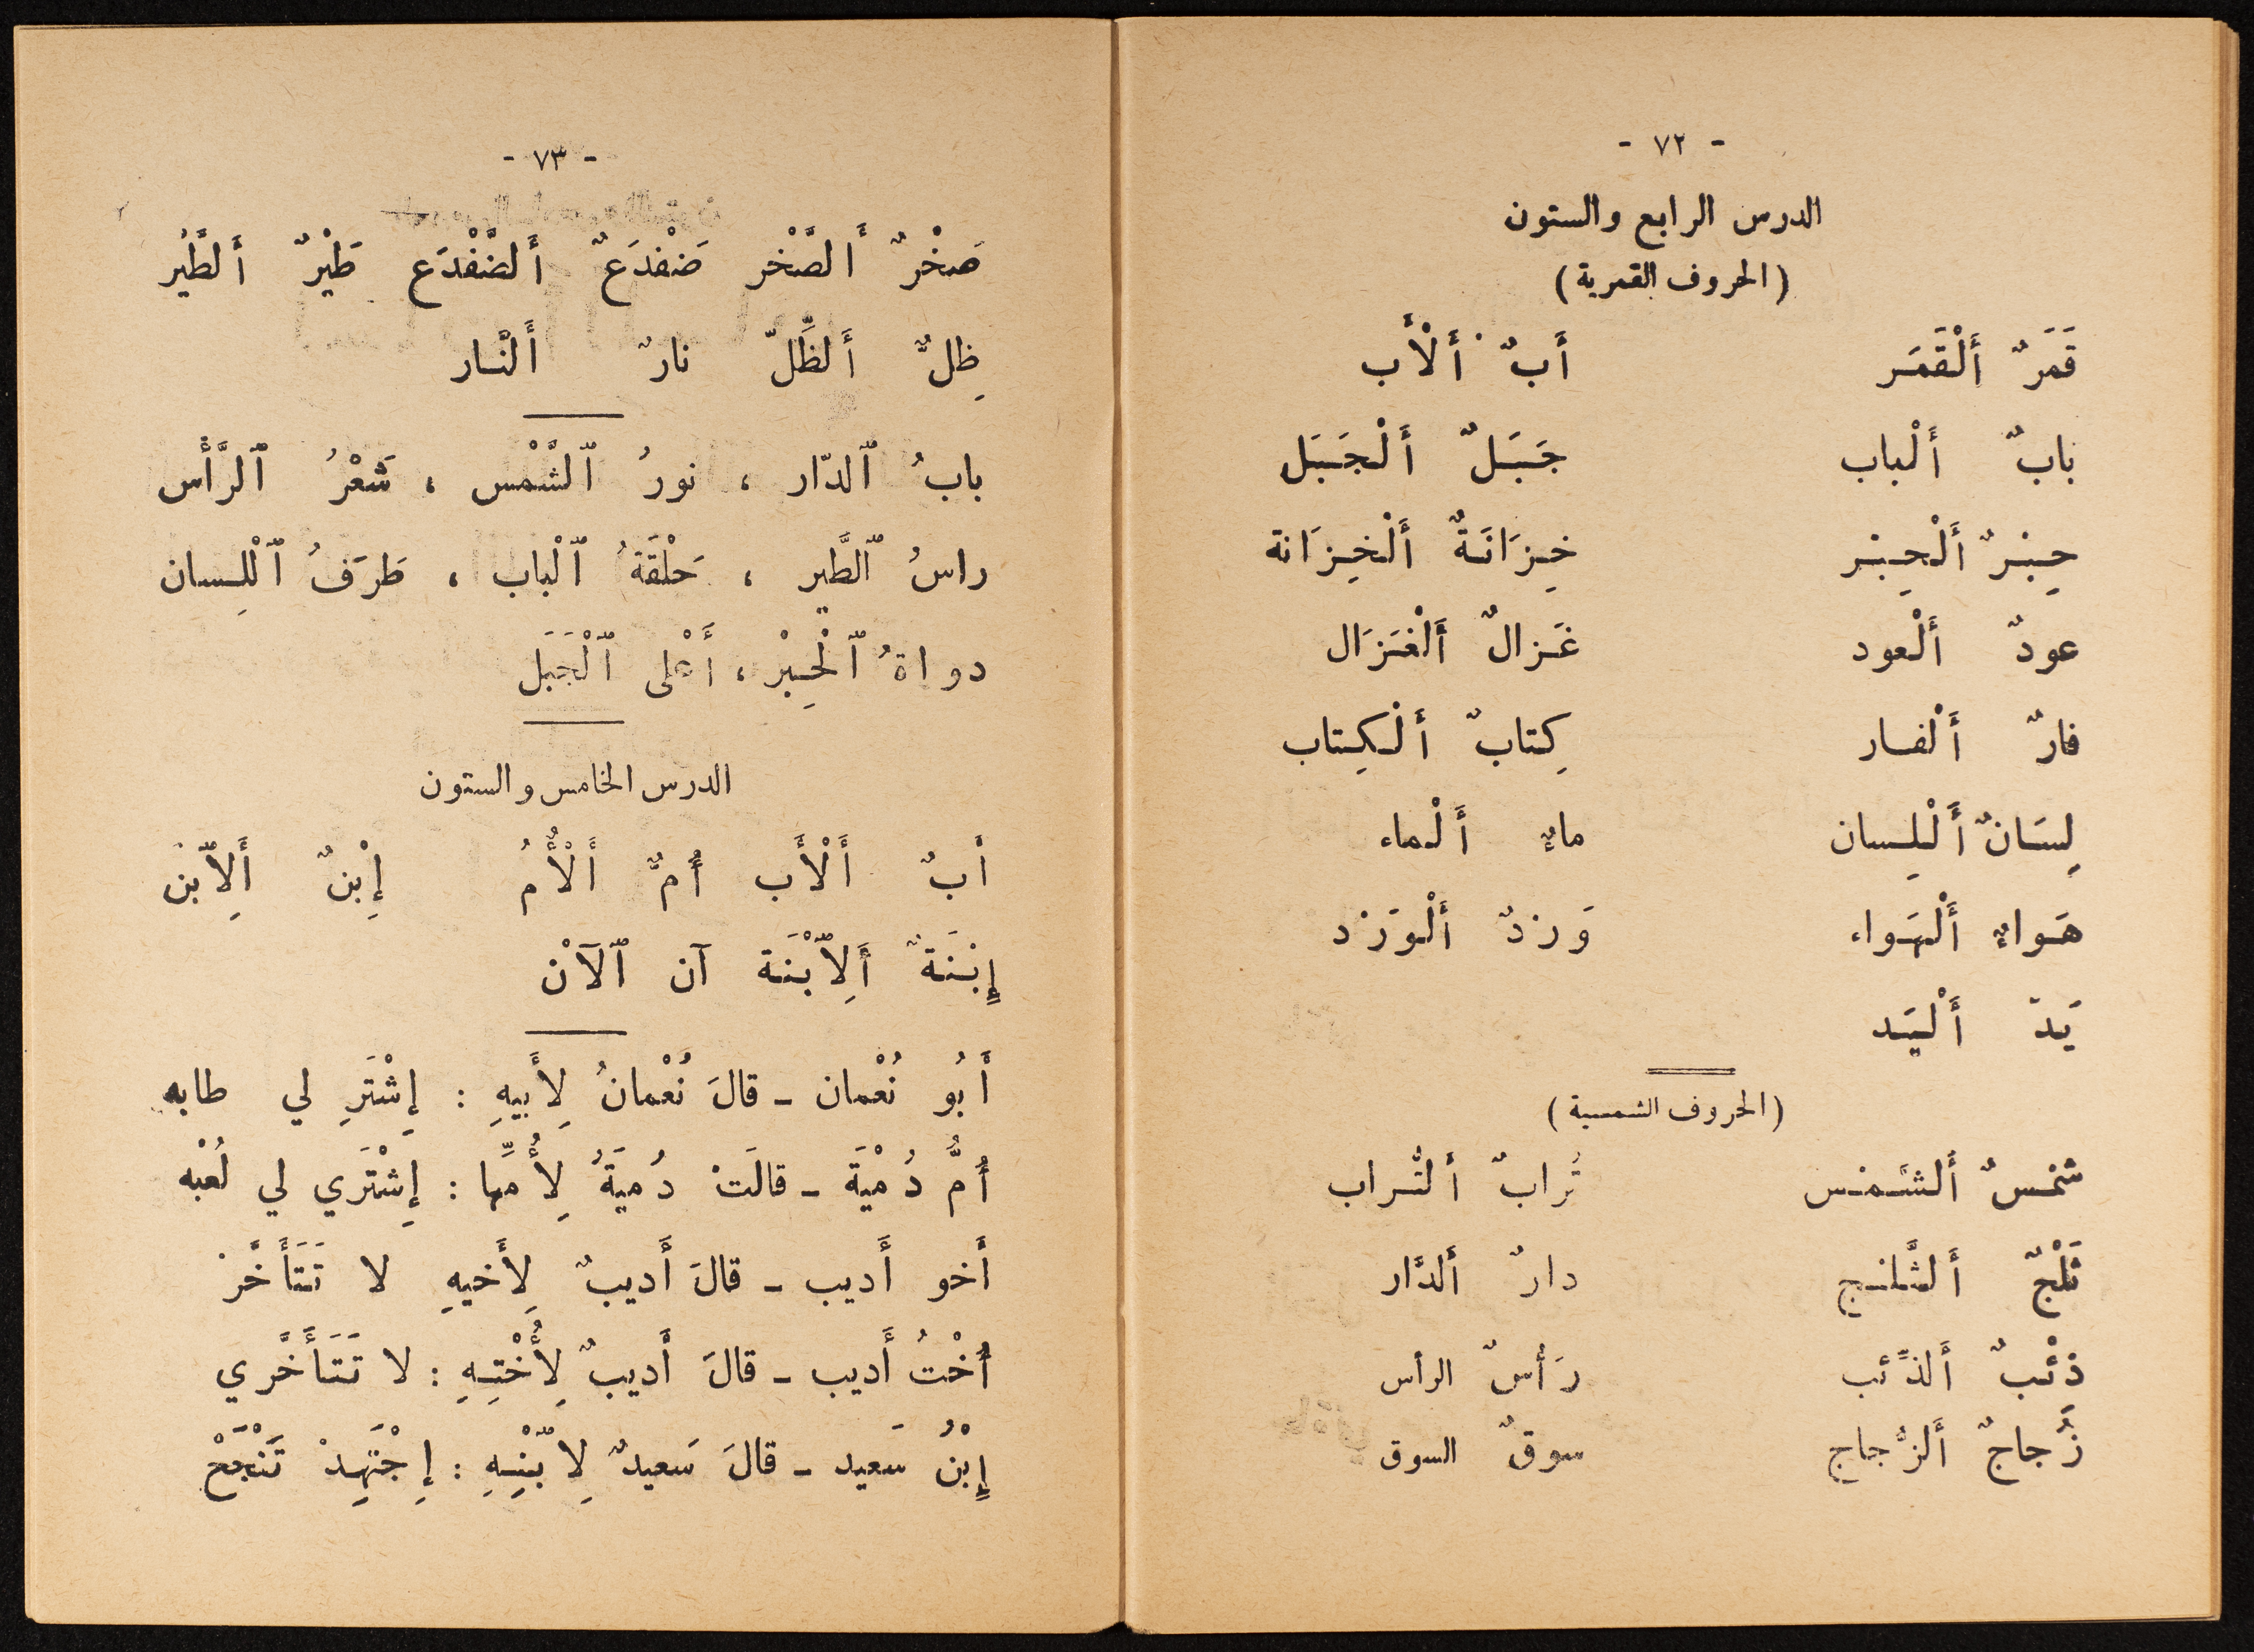 - ٧٢ -
الدرس الرابع والستون
(الحروف القمرية)
قَمَرٌ أَلْقَمَر أَبٌ أَلْأَب
بابٌ أَلْباب جَبَلٌ أَلْجَبَل
حِبْرٌ أَلْحِبْر خِزَانَةٌ أَلْخِزَانة
عودٌ أَلْعود غَزالٌ أَلْغَزَال
فارٌ أَلْفار كِتابٌ أَلْكِتاب
لِسَانٌ أَلْلِسان ماءٌ أَلْماء
هَواءٌ أَلْهَواء وَرْدٌ أَلْوَرْد
يَدٌ أَلْيَد
(الحروف الشمسية)
شَمْسٌ أَلشَّمْس تُرابٌ أَلتُّراب
ثَلْجٌ أَلثَّلْج دارٌ أَلدَّار
ذئْبٌ أَلذِّئب رَأسٌ الرأس
زُجاجٌ أَلزُّجاج سوقٌ السوق
- ٧٣ -
صَخْرٌ أَلصَّخْر ضَفْدَعٌ أَلضَّفْدَع طَيْرٌ أَلطَّيْر
ظِلٌّ أَلظِّلّ نارٌ أَلنَّار
بابُ ٱلدّار ، نورُ ٱلشَّمْس ، شَعْرُ ٱلرَّأْس
راسُ ٱلطَّير ، حَلْقَةُ ٱلْباب ، طَرَفُ ٱلْلِسان
دواةُ ٱلْحِبْر ، أَعْلى ٱلْجَبَل
الدرس الخامس والستون
أبٌ أَلْأَب أُمٌّ أَلْأُمُّ إِبْنٌ أَلِٱبْن
إِبْنَةٌ أَلِٱبْنَة آن ٱلْآن
أَبُو نُعْمان - قالَ نُعْمانُ لِأَبيهِ : إِشْتَرِ لي طابه
أُمُّ دُمْيَة - قالَتْ دُميَةُ لِأُمِّها : إِشْتَري لي لُعْبه
أَخو أَديب - قالَ أَديبٌ لِأَخيهِ لا تَتَأَخَّرْ
أُخْتُ أَديب - قالَ أَديبٌ لِأُخْتِهِ : لا تَتَأَخَّري
إِبْنُ سَعيد - قالَ سَعيدٌ لِٱبْنِهِ : إِجْتَهِدْ تَنْجَحْ